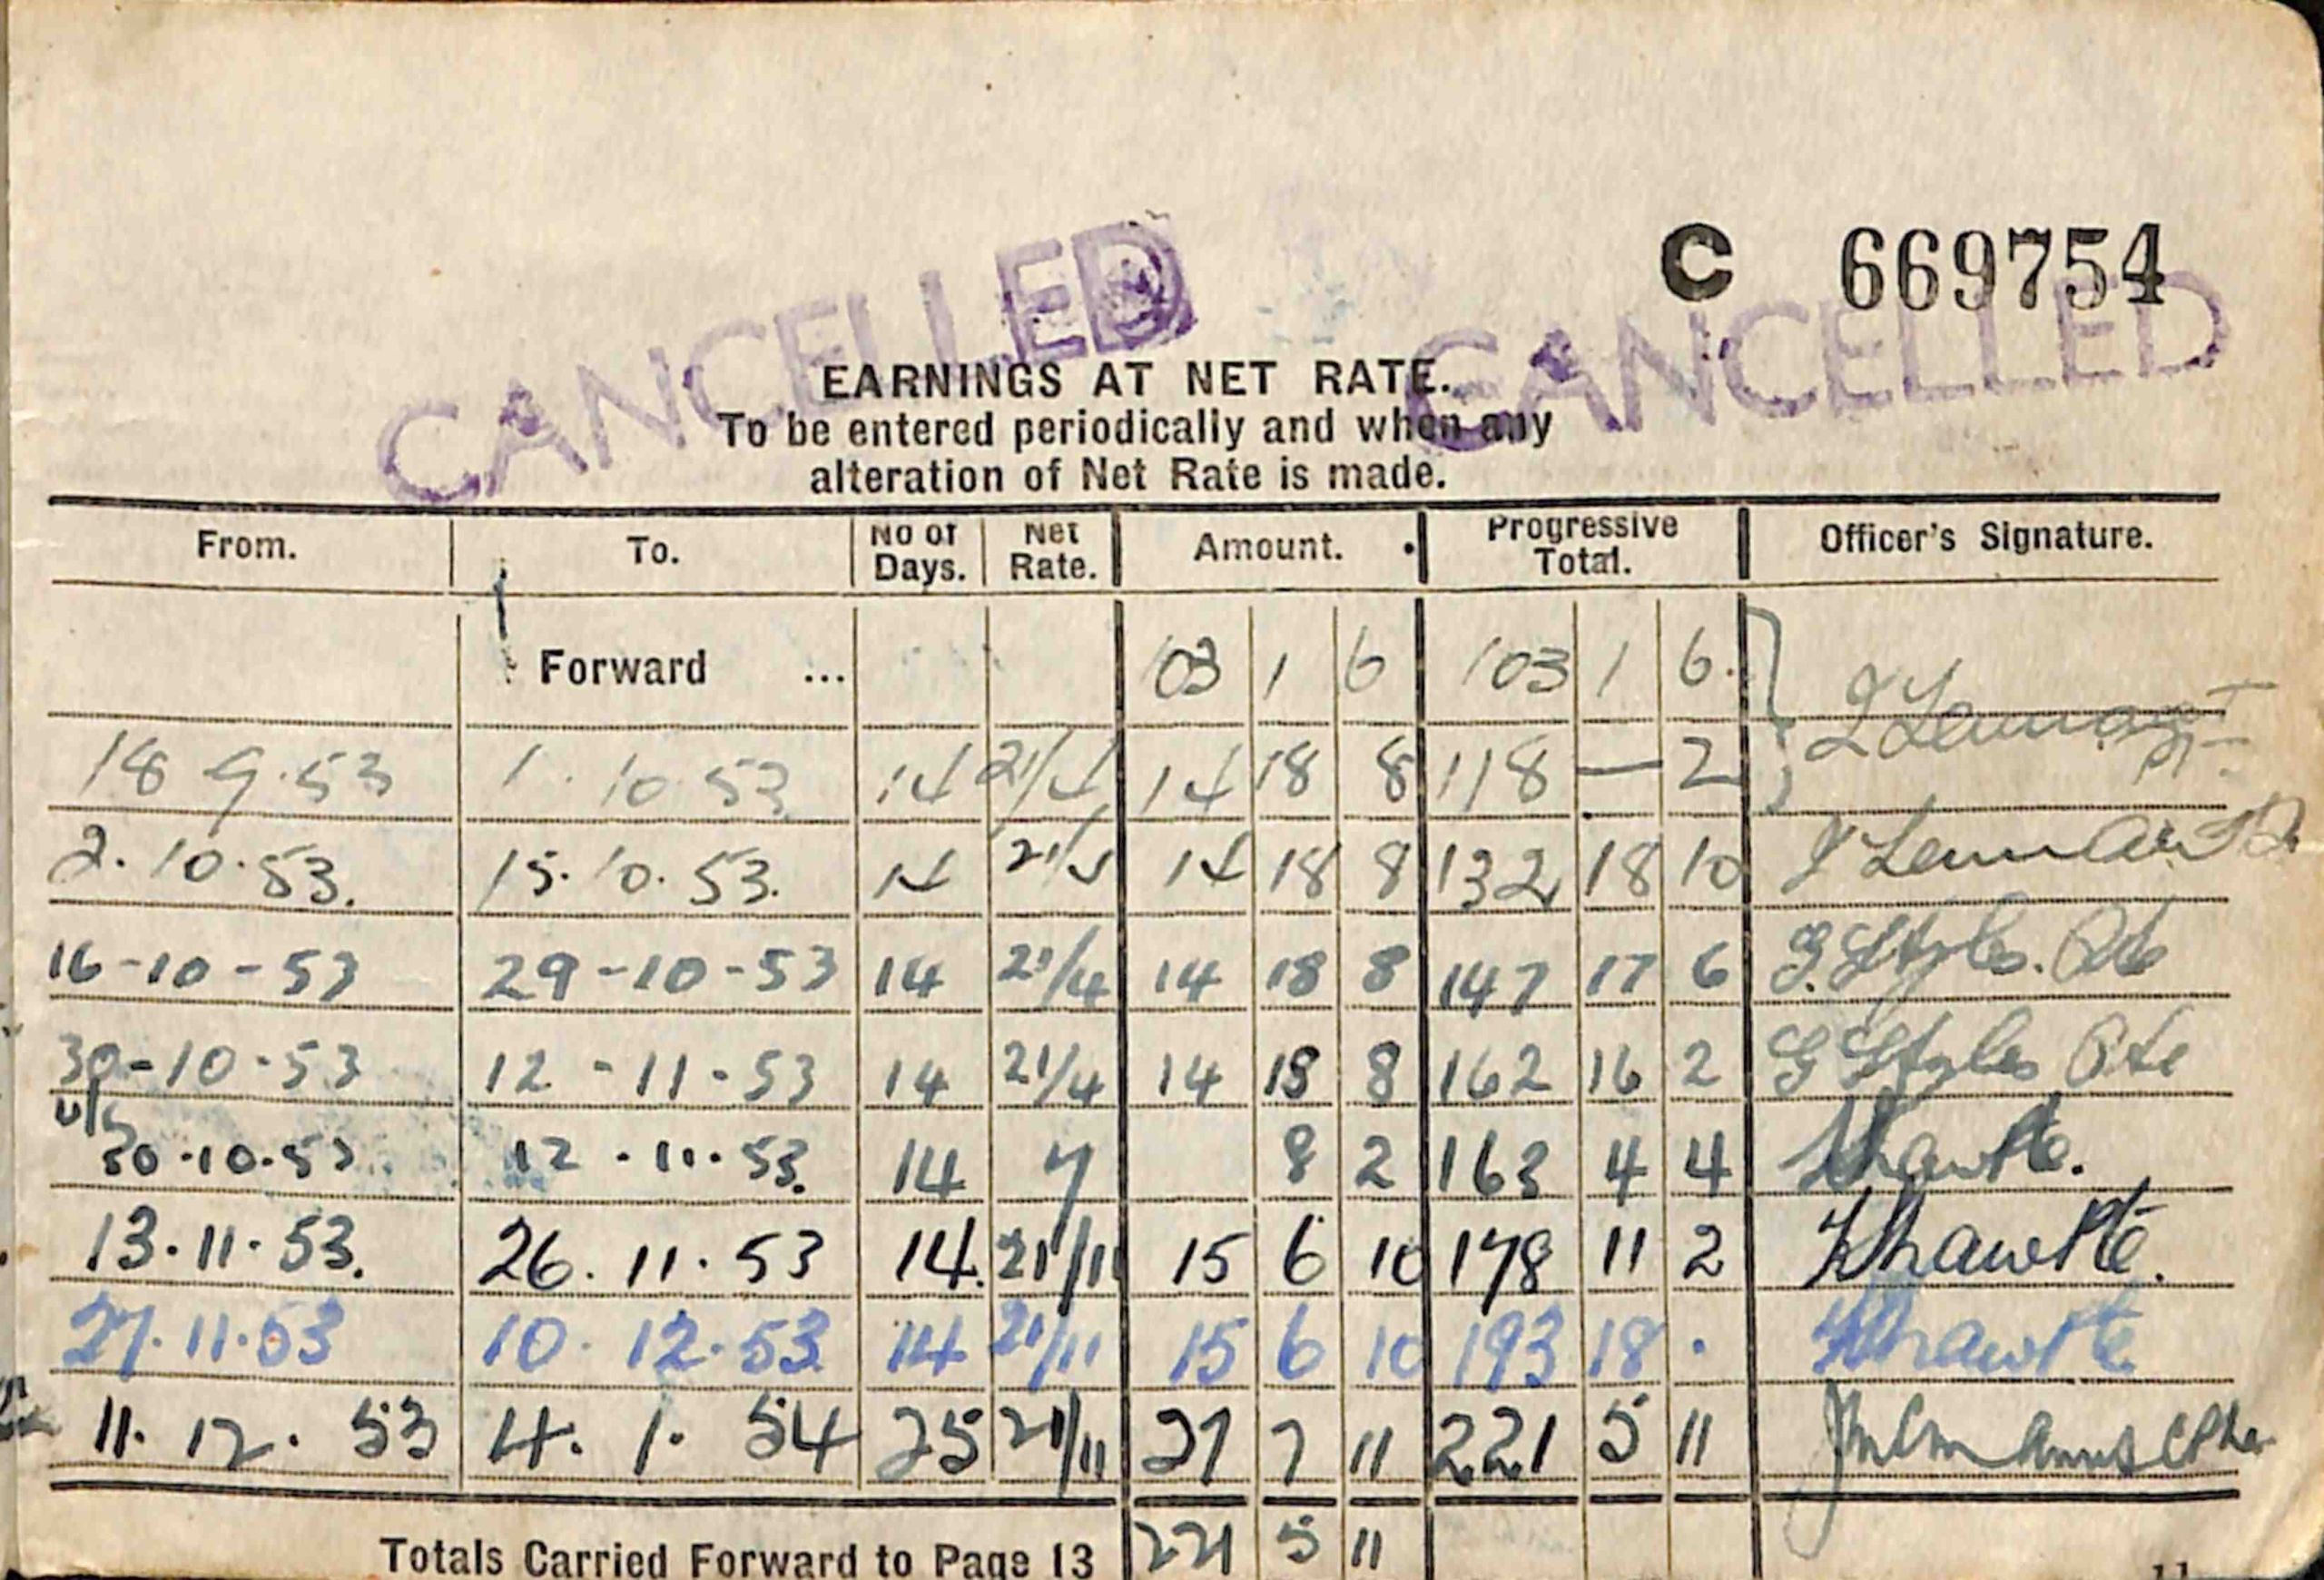 C 669754
CANCELLED CANCELLED
EARNINGS AT NET RATE.
To be entered periodically and when any
alteration of Net Rate is made.
From. To. No of Days. Net Rate. Amount. Progressive Total. Officer's Signature.
Forward ... 103 1 6 103 1 6.
18 9.53 1. 10 53 14 21/4 14 18 8 118 — 2
2.10.53. 15.10.53. 14 21/4 14 18 8 132 18 10
16-10-53 29-10-53 14 21/4 14 18 8 147 17 6 G. Styles. Pte
30-10-53 12-11-53 14 21/4 14 18 8 162 16 2 G Styles Pte
30.10.53 12.11.53. 14 7 8 2 163 4 4 Shaw Pte.
13.11.53. 26.11.53 14. 21/11 15 6 10 178 11 2 Shaw Pte.
27.11.53 10.12.53. 14 21/11 15 6 10 193 18 . Shaw Pte
11.12.53 4.1.54 25 21/11 27 7 11 221 5 11
Totals Carried Forward to Page 13 221 5 11
11